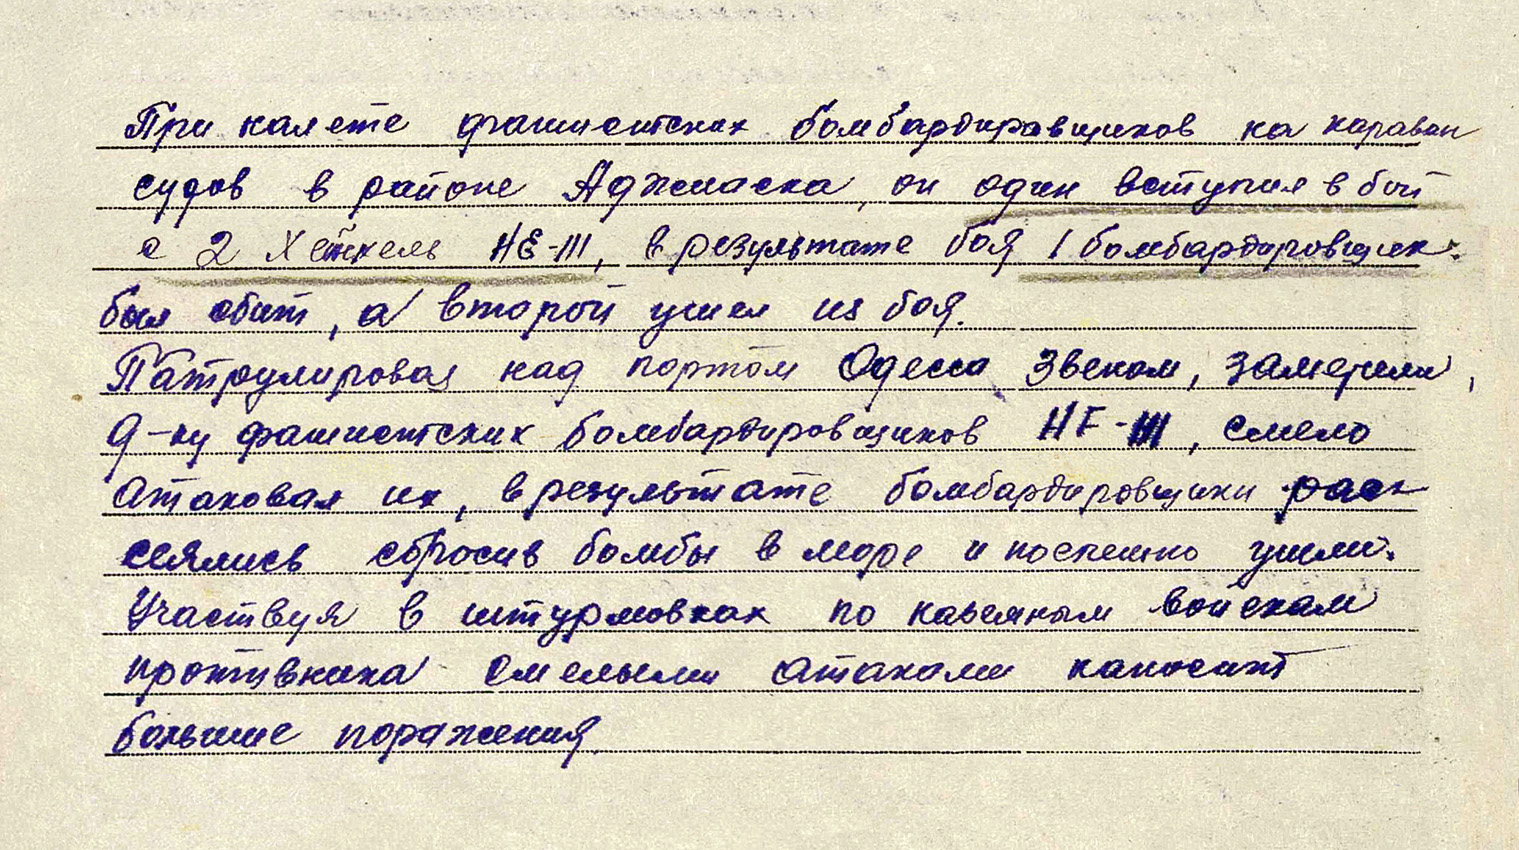 При налете фашистских бомбардировщиков на караван
судов в районе Аджиаска, он один вступил в бой
с 2 Хейнкель НЕ-III, в результате боя 1 бомбардировщик
был сбит, а второй ушел из боя.
Патрулировал над портом Одесса звеном, заметили,
9-ку фашистских бомбардировщиков НЕ-III, смело
атаковал их, в результате бомбардировщики рас-
сеялись сбросив бомбы в море и поспешно ушли.
Участвуя в штурмовках по наземным войскам
противника смелыми атаками наносит
большие поражения